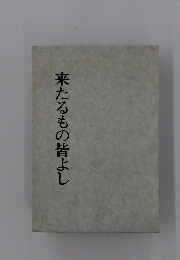 来たるもの皆よし